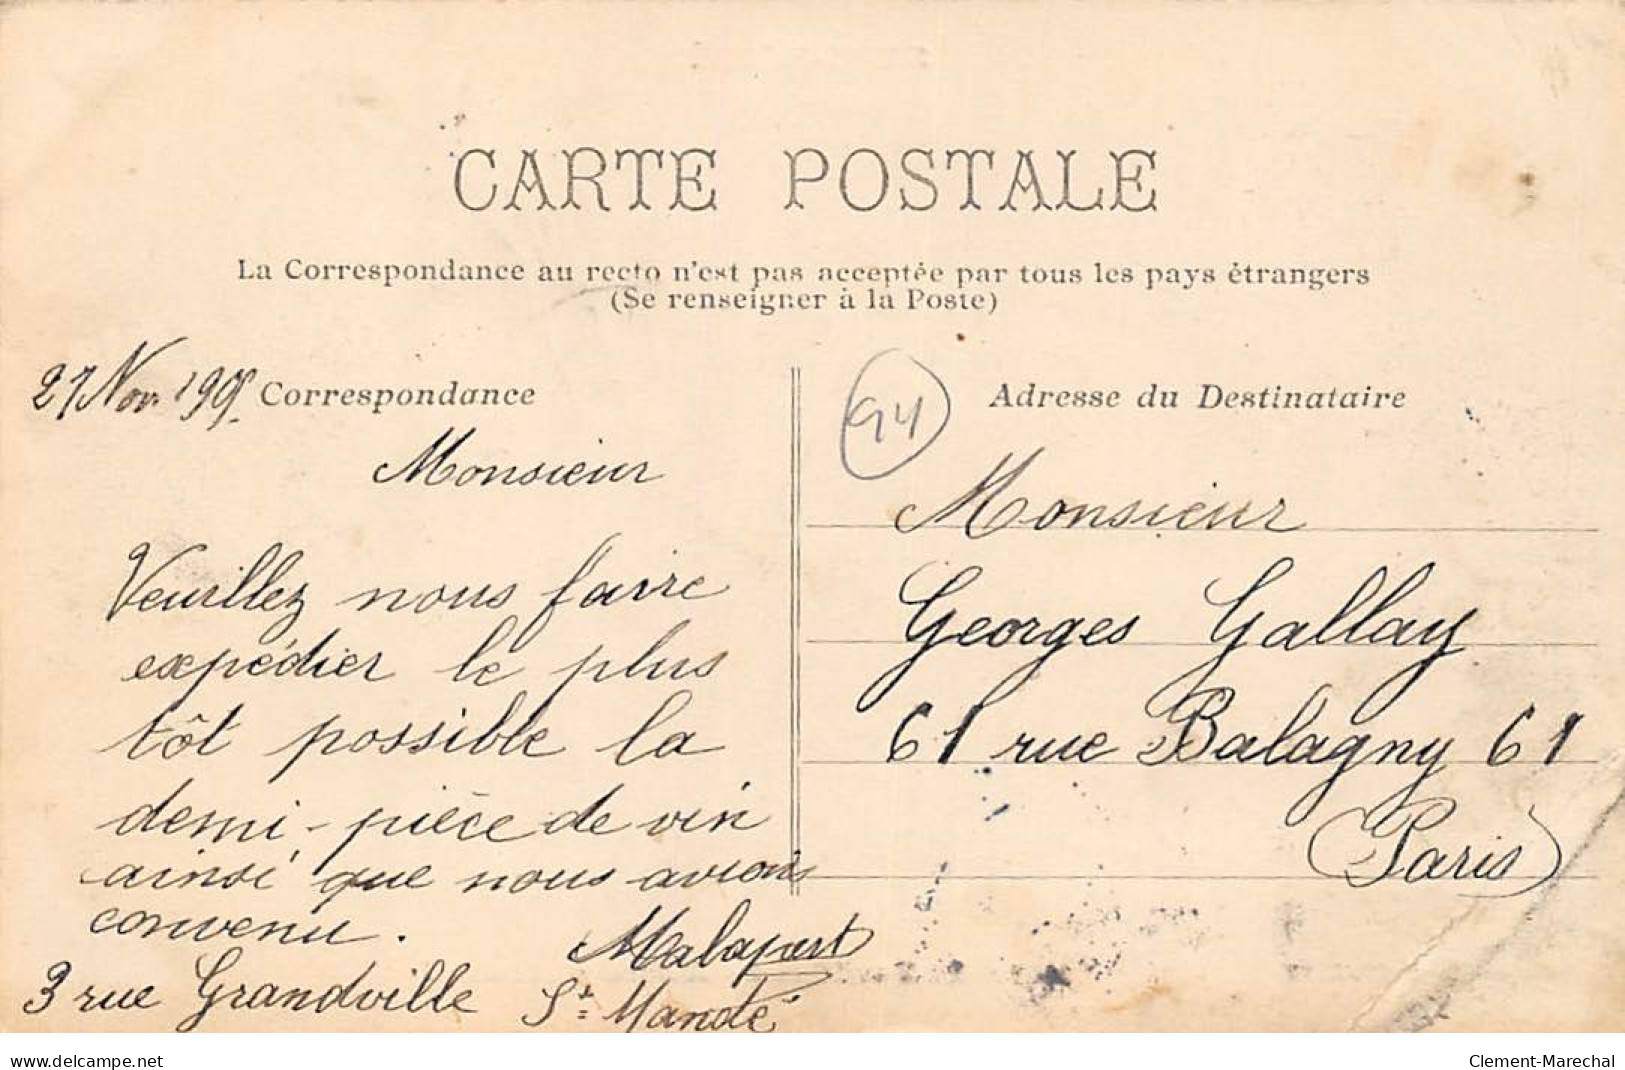 CARTE POSTALE
La Correspondance au recto n'est pas acceptée par tous les pays étrangers
(Se renseigner à la Poste)
27 Nov. Correspondance
Monsieur
Veuillez nous faire
expédier le plus
tôt possible la
demi-pièce de vin
ainsi que nous avions
convenu.
Malapert
3 rue Grandville St Mandé
94
Adresse du Destinataire
Monsieur
Georges Gallay
61 rue Balagny 61
(Paris)
www.delcampe.net
Clement-Marechal